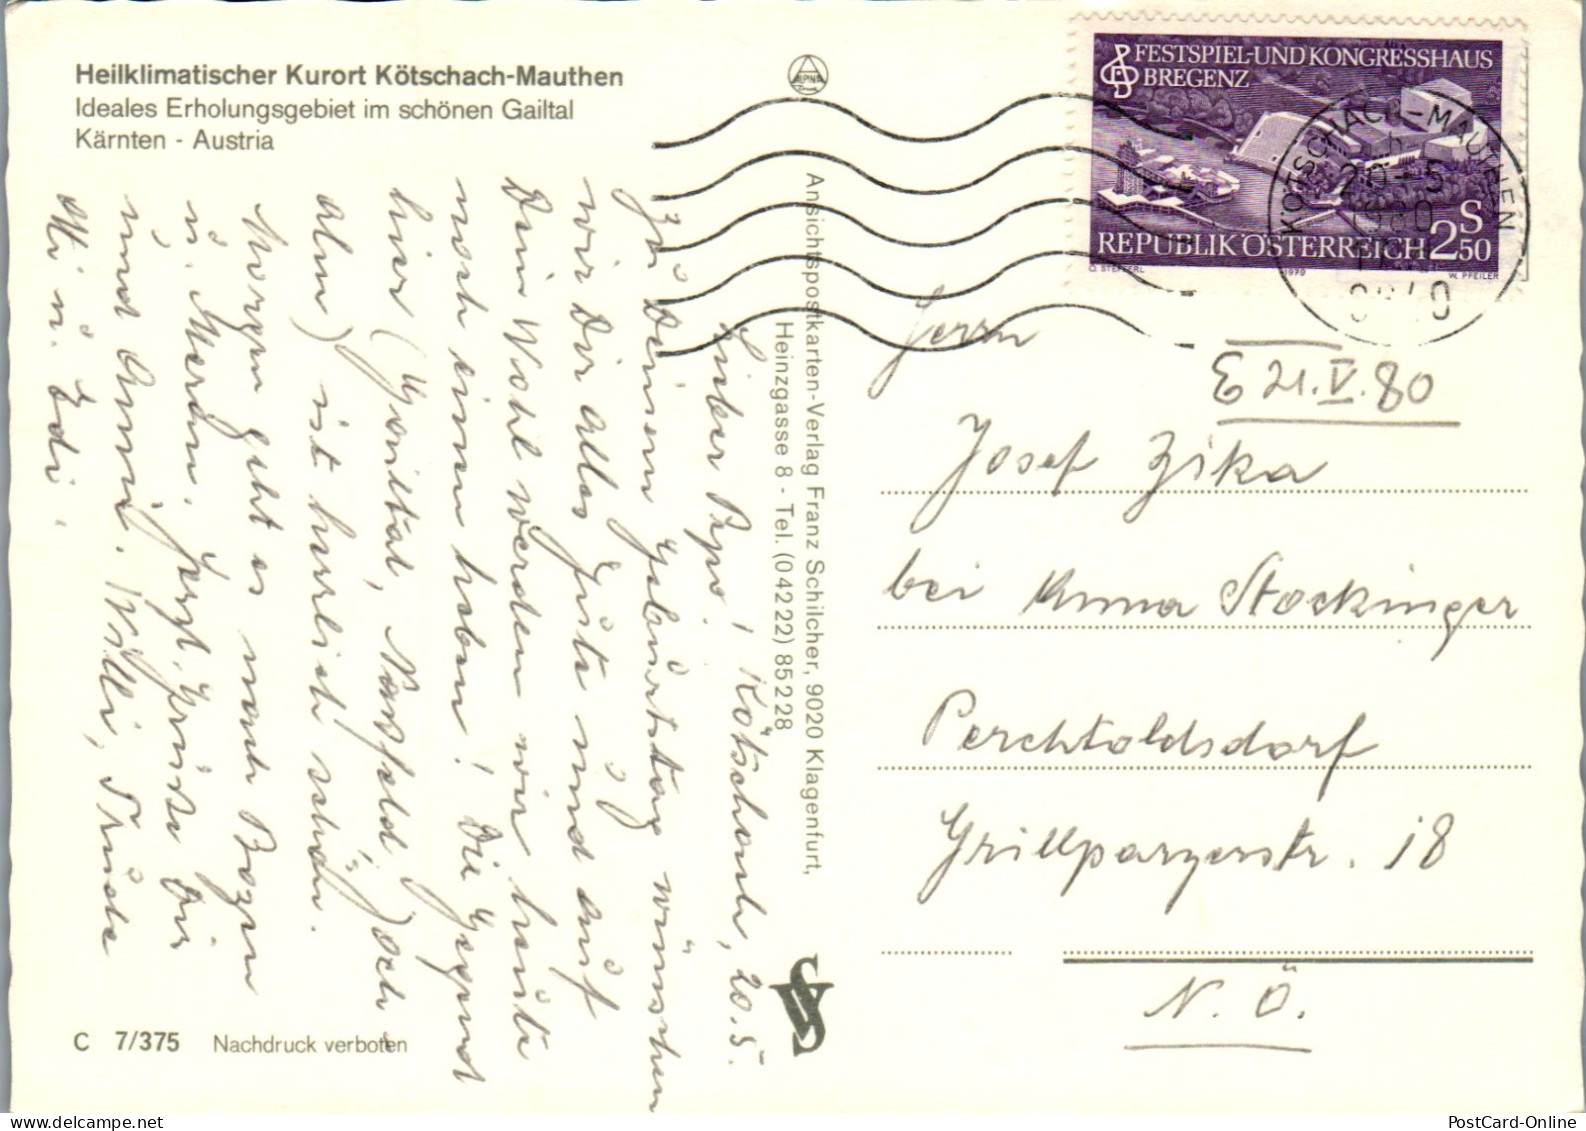 Heilklimatischer Kurort Kötschach-Mauthen
Ideales Erholungsgebiet im schönen Gailtal
Kärnten - Austria
Lieber Pepo! Kötschach, 20.5.
Zu Deinem Geburtstag wünschen
wir Dir alles Gute und auf
Dein Wohl werden wir heute
noch einen heben! Die Gegend
hier (Gailtal, Nassfeld, Joch-
alm) ist herrlich schön.
Morgen geht es nach Bozen
u. Meran. Herzl. Grüße Dir
und Anni. Willi, Trude
Mi u. Edi.
C 7/375 Nachdruck verboten
Ansichtspostkarten-Verlag Franz Schilcher, 9020 Klagenfurt,
Heinzgasse 8 - Tel. (04222) 85228
FESTSPIEL-UND KONGRESSHAUS
BREGENZ
REPUBLIK ÖSTERREICH S 2 50
O. STEFFERL 1979 W. PFEILER
KÖTSCHACH-MAUTHEN
20-5
1980
E 21.V.80
Herrn
Josef Zika
bei Anna Stockinger
Perchtoldsdorf
Grillparzerstr. 18
N.Ö.
PostCard-Online